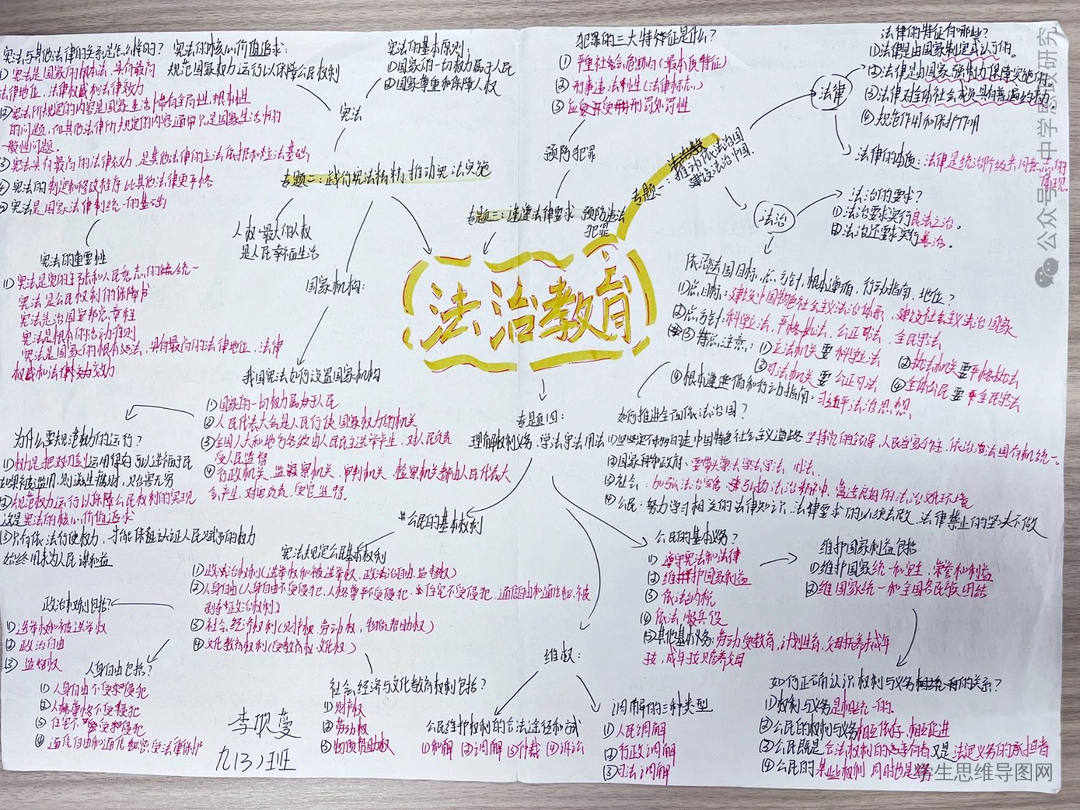 法治教育
专题一：推动依法治国 建设法治中国
法律
法律的特征有哪些？
①法律是由国家制定或认可的。
②法律是由国家强制力保障实施的
③法律对全体社会成员具有普遍约束力
④规范作用和保护作用
法律的本质：法律是统治阶级共同意志的体现
法治
法治的要求？
①法治要求实行良法之治。
②法治还要求实行善治。
依法治国目标，总方针，根本遵循，行动指南，地位？
①总目标：建设中国特色社会主义法治体系，建设社会主义法治国家
②总方针：科学立法，严格执法，公正司法，全民守法
①立法机关要科学立法
②执法机关要严格执法
③司法机关要公正司法
④全体公民要全民守法
④根本遵循和行动指南：习近平法治思想
如何推进全面依法治国？
②国家和政府：
③社会：加强法治宣传
④公民：努力学习相关的法律知识，法律要求的必须去做，法律禁止的坚决不做
专题二：践行宪法精神，推动宪法实施
宪法
宪法与其他法律的关系是怎么样的？
①宪法是国家的根本法，具有最高
法律地位，法律权威和法律效力
②宪法所规定的内容是国家生活中带有全局性，根本性
的问题，而其他法律所规定的内容通常只是国家生活中的
一般性问题。
③宪法具有最高的法律效力，是其他法律的立法依据和立法基础
④宪法的制定和修改程序比其他法律更严格
⑤宪法是国家法律制统一的基础
宪法的核心价值追求：
规范国家权力运行以保障公民权利
宪法的基本原则：
①国家的一切权力属于人民
②国家尊重和保障人权
宪法的重要性
宪法是公民权利的保障书
宪法是治国安邦总章程
宪法是根本的活动准则
宪法是国家的根本法，具有最高的法律地位，法律
权威和法律效力
人权：最大的人权
是人民幸福生活
国家机构：
我国宪法如何设置国家机构
①国家的一切权力属于人民
②人民代表大会是人民行使国家权力的机关
③全国人大和地方各级由人民民主选举产生，对人民负责
受人民监督
④行政机关，监察机关，审判机关，检察机关都由人民代表大
会产生，对它负责，受它监督
为什么要规范权力的运行？
②规范权力运行以保障公民权利的实现
这是宪法的核心价值追求
始终用来为人民谋利益
专题三：遵守法律要求 预防违法犯罪
预防犯罪
犯罪的三大特征是什么？
①严重社会危害性（最本质特征）
②刑事违法性（法律标志）
③应受刑罚处罚性
专题四：
理解权利义务，学法守法用法
公民的基本权利
宪法规定公民基本权利
①政治权利（选举权和被选举权，政治自由，监督权）
③社会经济权利（财产权，劳动权，物质帮助权）
④文化教育权利（受教育权，文化权）
政治权利包括？
①选举权和被选举权
②政治自由
③监督权
人身自由包括？
①人身自由不受侵犯
②人格尊严不受侵犯
③住宅不受侵犯
④通信自由和通信秘密受法律保护
社会经济与文化教育权利包括？
①财产权
②劳动权
③物质帮助权
公民的基本义务？
①遵守宪法和法律
②维护国家利益
③依法纳税
④依法服兵役
维护国家利益包括
①维护国家统一和安全，荣誉和利益
②维国家统一和全国各民族团结
维权：
公民维护权利的合法途径和方式
①和解 ②调解 ③仲裁 ④诉讼
调解的三种类型
①人民调解
②行政调解
③司法调解
如何正确认识权利与义务的关系？
①权利与义务是相统一的。
②公民的权利与义务相互依存，相互促进
③公民既是合法权利的享有者又是法定义务的承担者
④公民的某些权利同时也是义务
九(3)班
公众号·中学思政研究
学生思维导图网